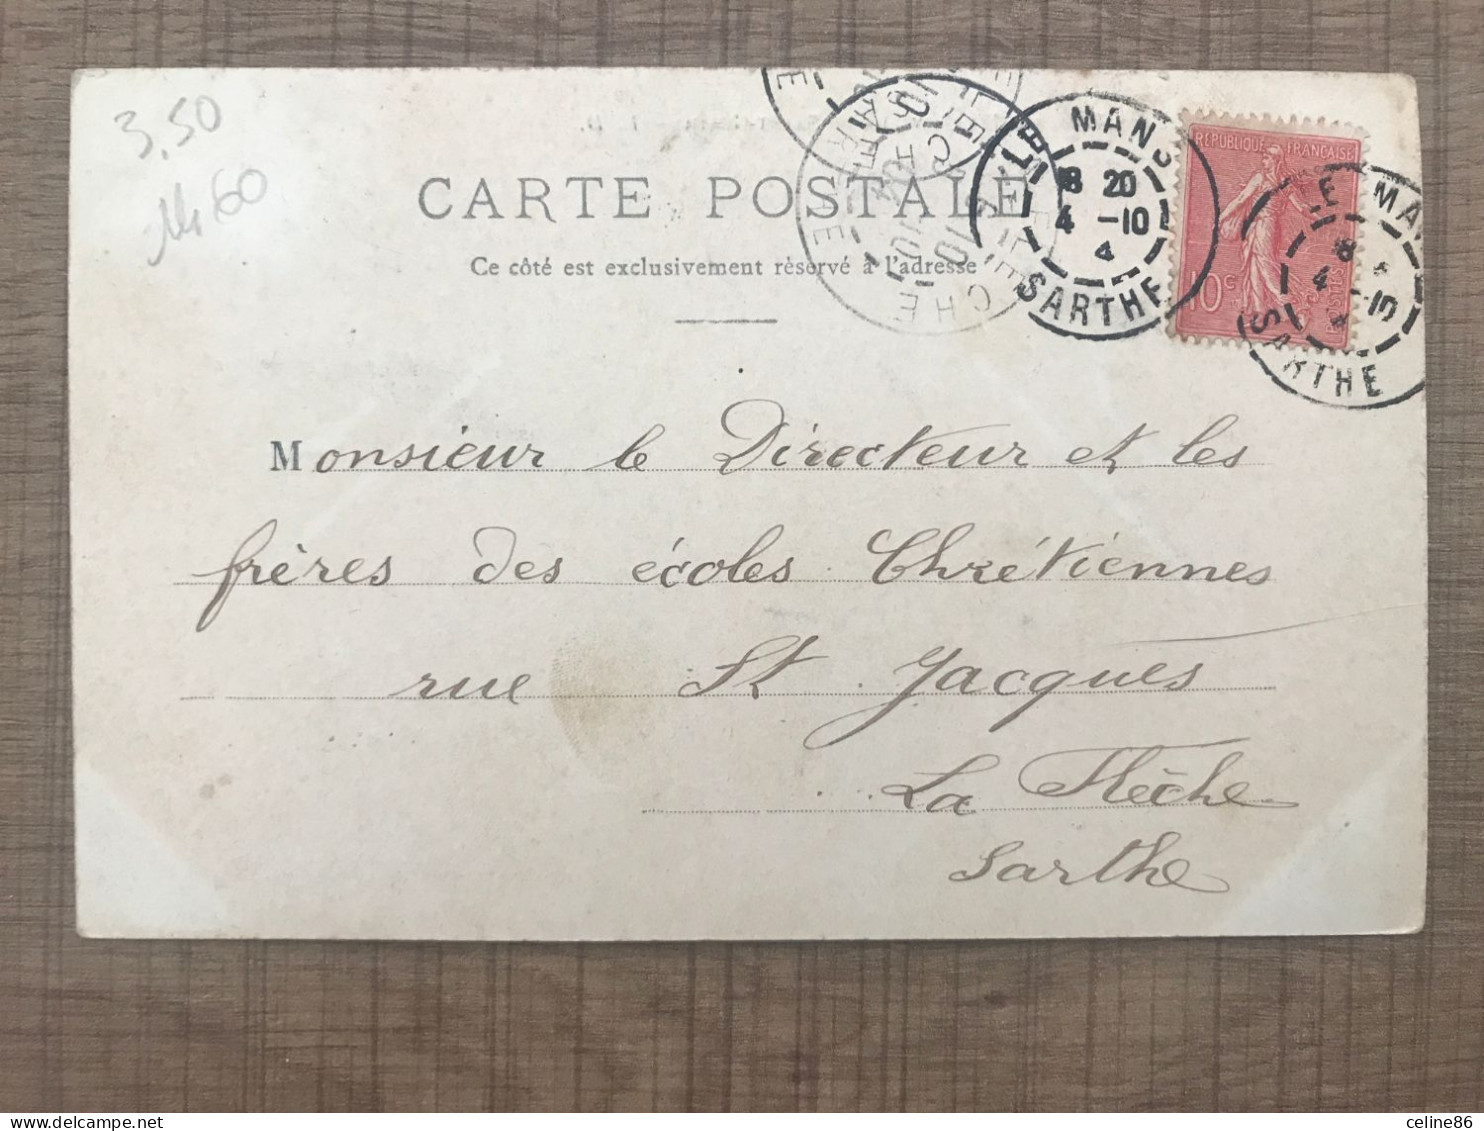 3,50
CARTE POSTALE
Ce côté est exclusivement réservé à l'adresse
LE MANS
8 20
4 -10
4
SARTHE
REPUBLIQUE FRANÇAISE
10c
POSTES
LE MAN
8
4 -10
SARTHE
Monsieur le Directeur et les
frères des écoles Chrétiennes
rue St Jacques
La Flèche
Sarthe
celine86